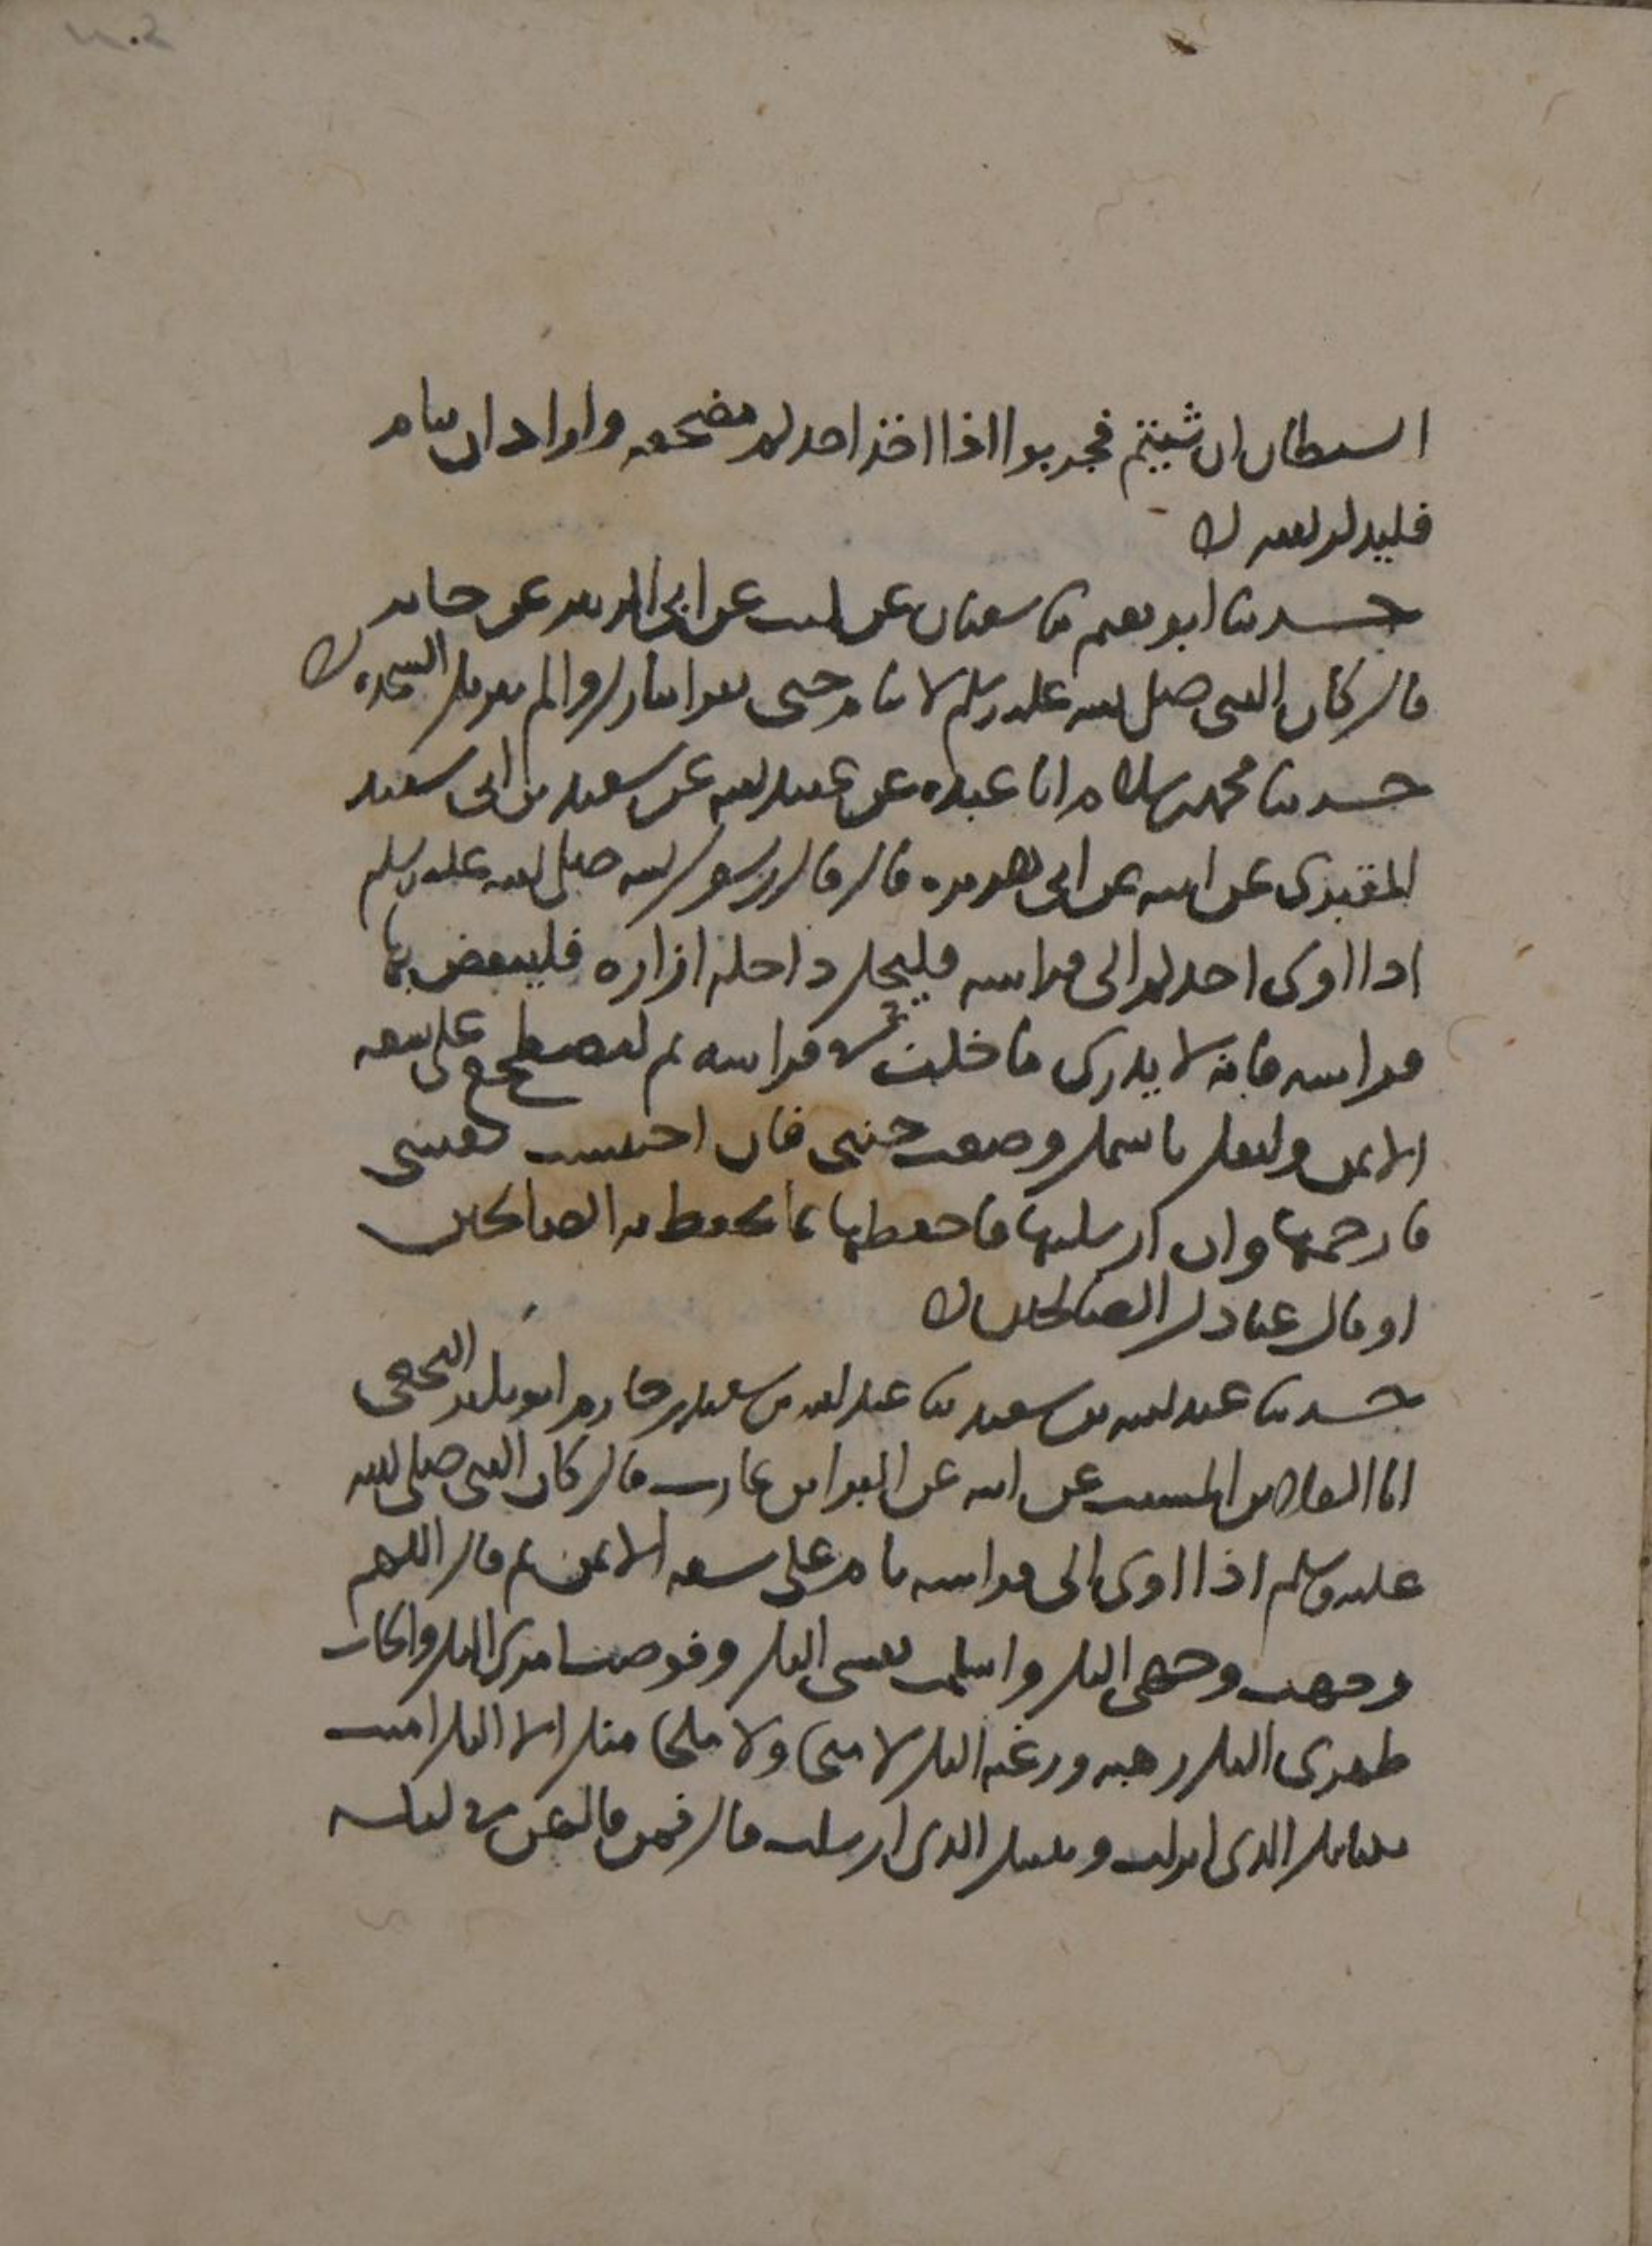 الشيطان ان شيتم فجربوا اذا اخذ احدكم مضجعه واراد ان ينام
فليذكر الله
حدثنا ابو نعيم ثنا سفيان عن ليث عن ابي الزبير عن جابر
قال كان النبي صلى الله عليه وسلم لا ينام حتى يقرا تبارك والم تنزيل السجدة
حدثنا محمد بن سلام انا عبدة عن عبيد الله عن سعيد بن ابي سعيد
المقبري عن ابيه عن ابي هريرة قال قال رسول الله صلى الله عليه وسلم
اذا اوى احدكم الى فراشه فليحل داخلة ازاره فلينفض بها
فراشه فانه لا يدري ما خلف في فراشه ثم ليضطجع على شقه
الايمن وليقل باسمك وضعت جنبي فان احتبست نفسي
فارحمها وان ارسلتها فاحفظها بما تحفظ به الصالحين
او قال عبادك الصالحين
حدثنا عبد الله بن سعيد ثنا عبد الله بن سعيد بن خازم ابو بكر النخعي
انا العلاء بن المسيب عن ابيه عن البرا بن عازب قال كان النبي صلى الله
عليه وسلم اذا اوى الى فراشه نام على شقه الايمن ثم قال اللهم
وجهت وجهي اليك واسلمت نفسي اليك وفوضت امري اليك والجات
ظهري اليك رهبة ورغبة اليك لا منجا ولا ملجا منك الا اليك امنت
بكتابك الذي انزلت ونبيك الذي ارسلت قال فمن قالهن في ليلته